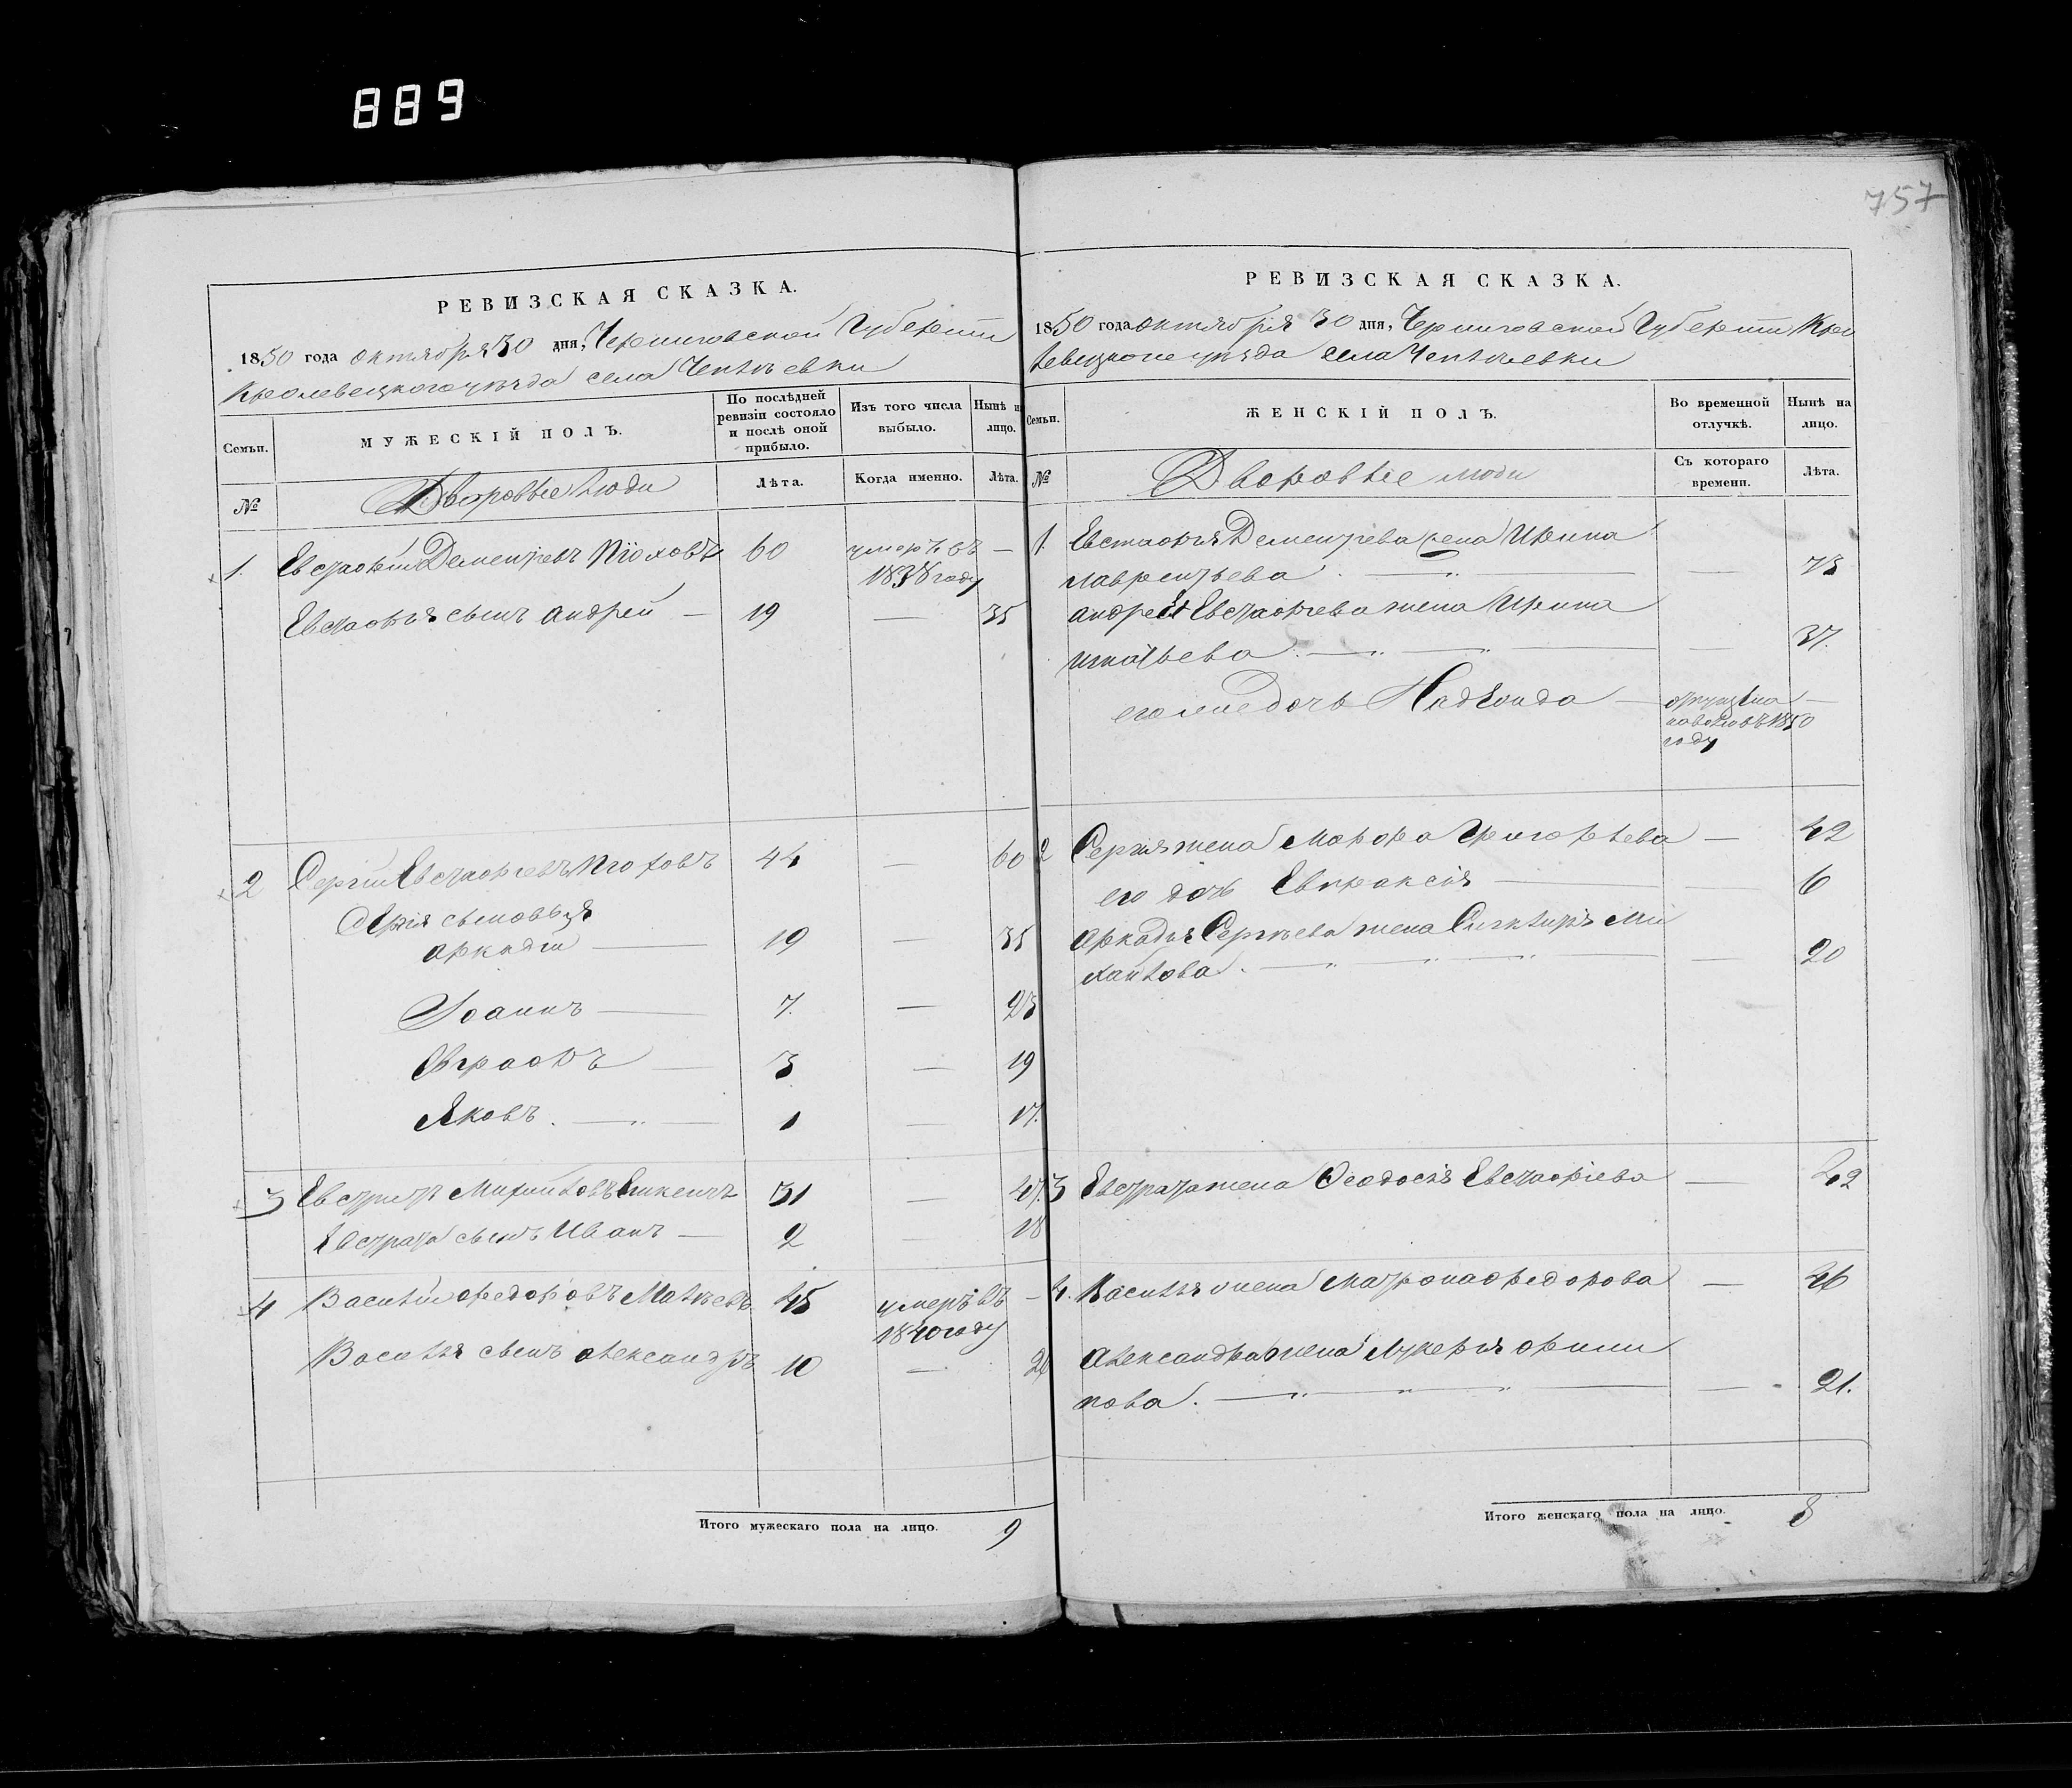 889
757
РЕВИЗСКАЯ СКАЗКА.
1850 года октября 30 дня, Черниговской Губернии
Кролевецкого уезда села Чепліевки
Семьи.
МУЖЕСКІЙ ПОЛЪ.
По послѣдней ревизіи состояло и послѣ оной прибыло.
Изъ того числа выбыло.
Нынѣ на лицо.
№
Дворовые люди
Лѣта.
Когда именно.
Лѣта.
1. Евстафій Дементьевъ 60 умеръ въ —
1838 году
Евстафія сынъ Андрей — 19 — 35
2 Сергій Евстафіевъ 44 — 60
Сергія сыновья
Аркадій — 19 — 35
Іоаннъ — 7. — 23
Евграфъ — 3 — 19
Яковъ. — 1 — 17.
3 Евстратъ Михайловъ 31 — 47.
Евстрата сынъ Иванъ — 2 — 18
4 Василій Федоровъ 45 умеръ въ —
1840 году
Василія сынъ Александръ 10 — 26
Итого мужескаго пола на лицо. 9
РЕВИЗСКАЯ СКАЗКА.
1850 года октября 30 дня, Черниговской Губернии Кро
левецкого уезда села Чепліевки
Семьи.
ЖЕНСКІЙ ПОЛЪ.
Во временной отлучкѣ.
Нынѣ на лицо.
№
Дворовые люди
Съ котораго времени.
Лѣта.
1. Евстафія Дементьева жена Ирина
Лаврентьева. — 73
Андрея Евстафьева жена Ирина
Игнатьева. — 37.
его же дочь —
1850
году
2 Сергія жена Марфа Григорьева — 42
его дочь Евпраксія — 6
Аркадія Сергѣева жена Ми
хайлова. — 20
3 Евстрата жена Феодосія Евстафіева — 42
4. Василія жена Матрона Федорова — 46
Александра жена Лукерія Фили
пова. — 21.
Итого женскаго пола на лицо. 8